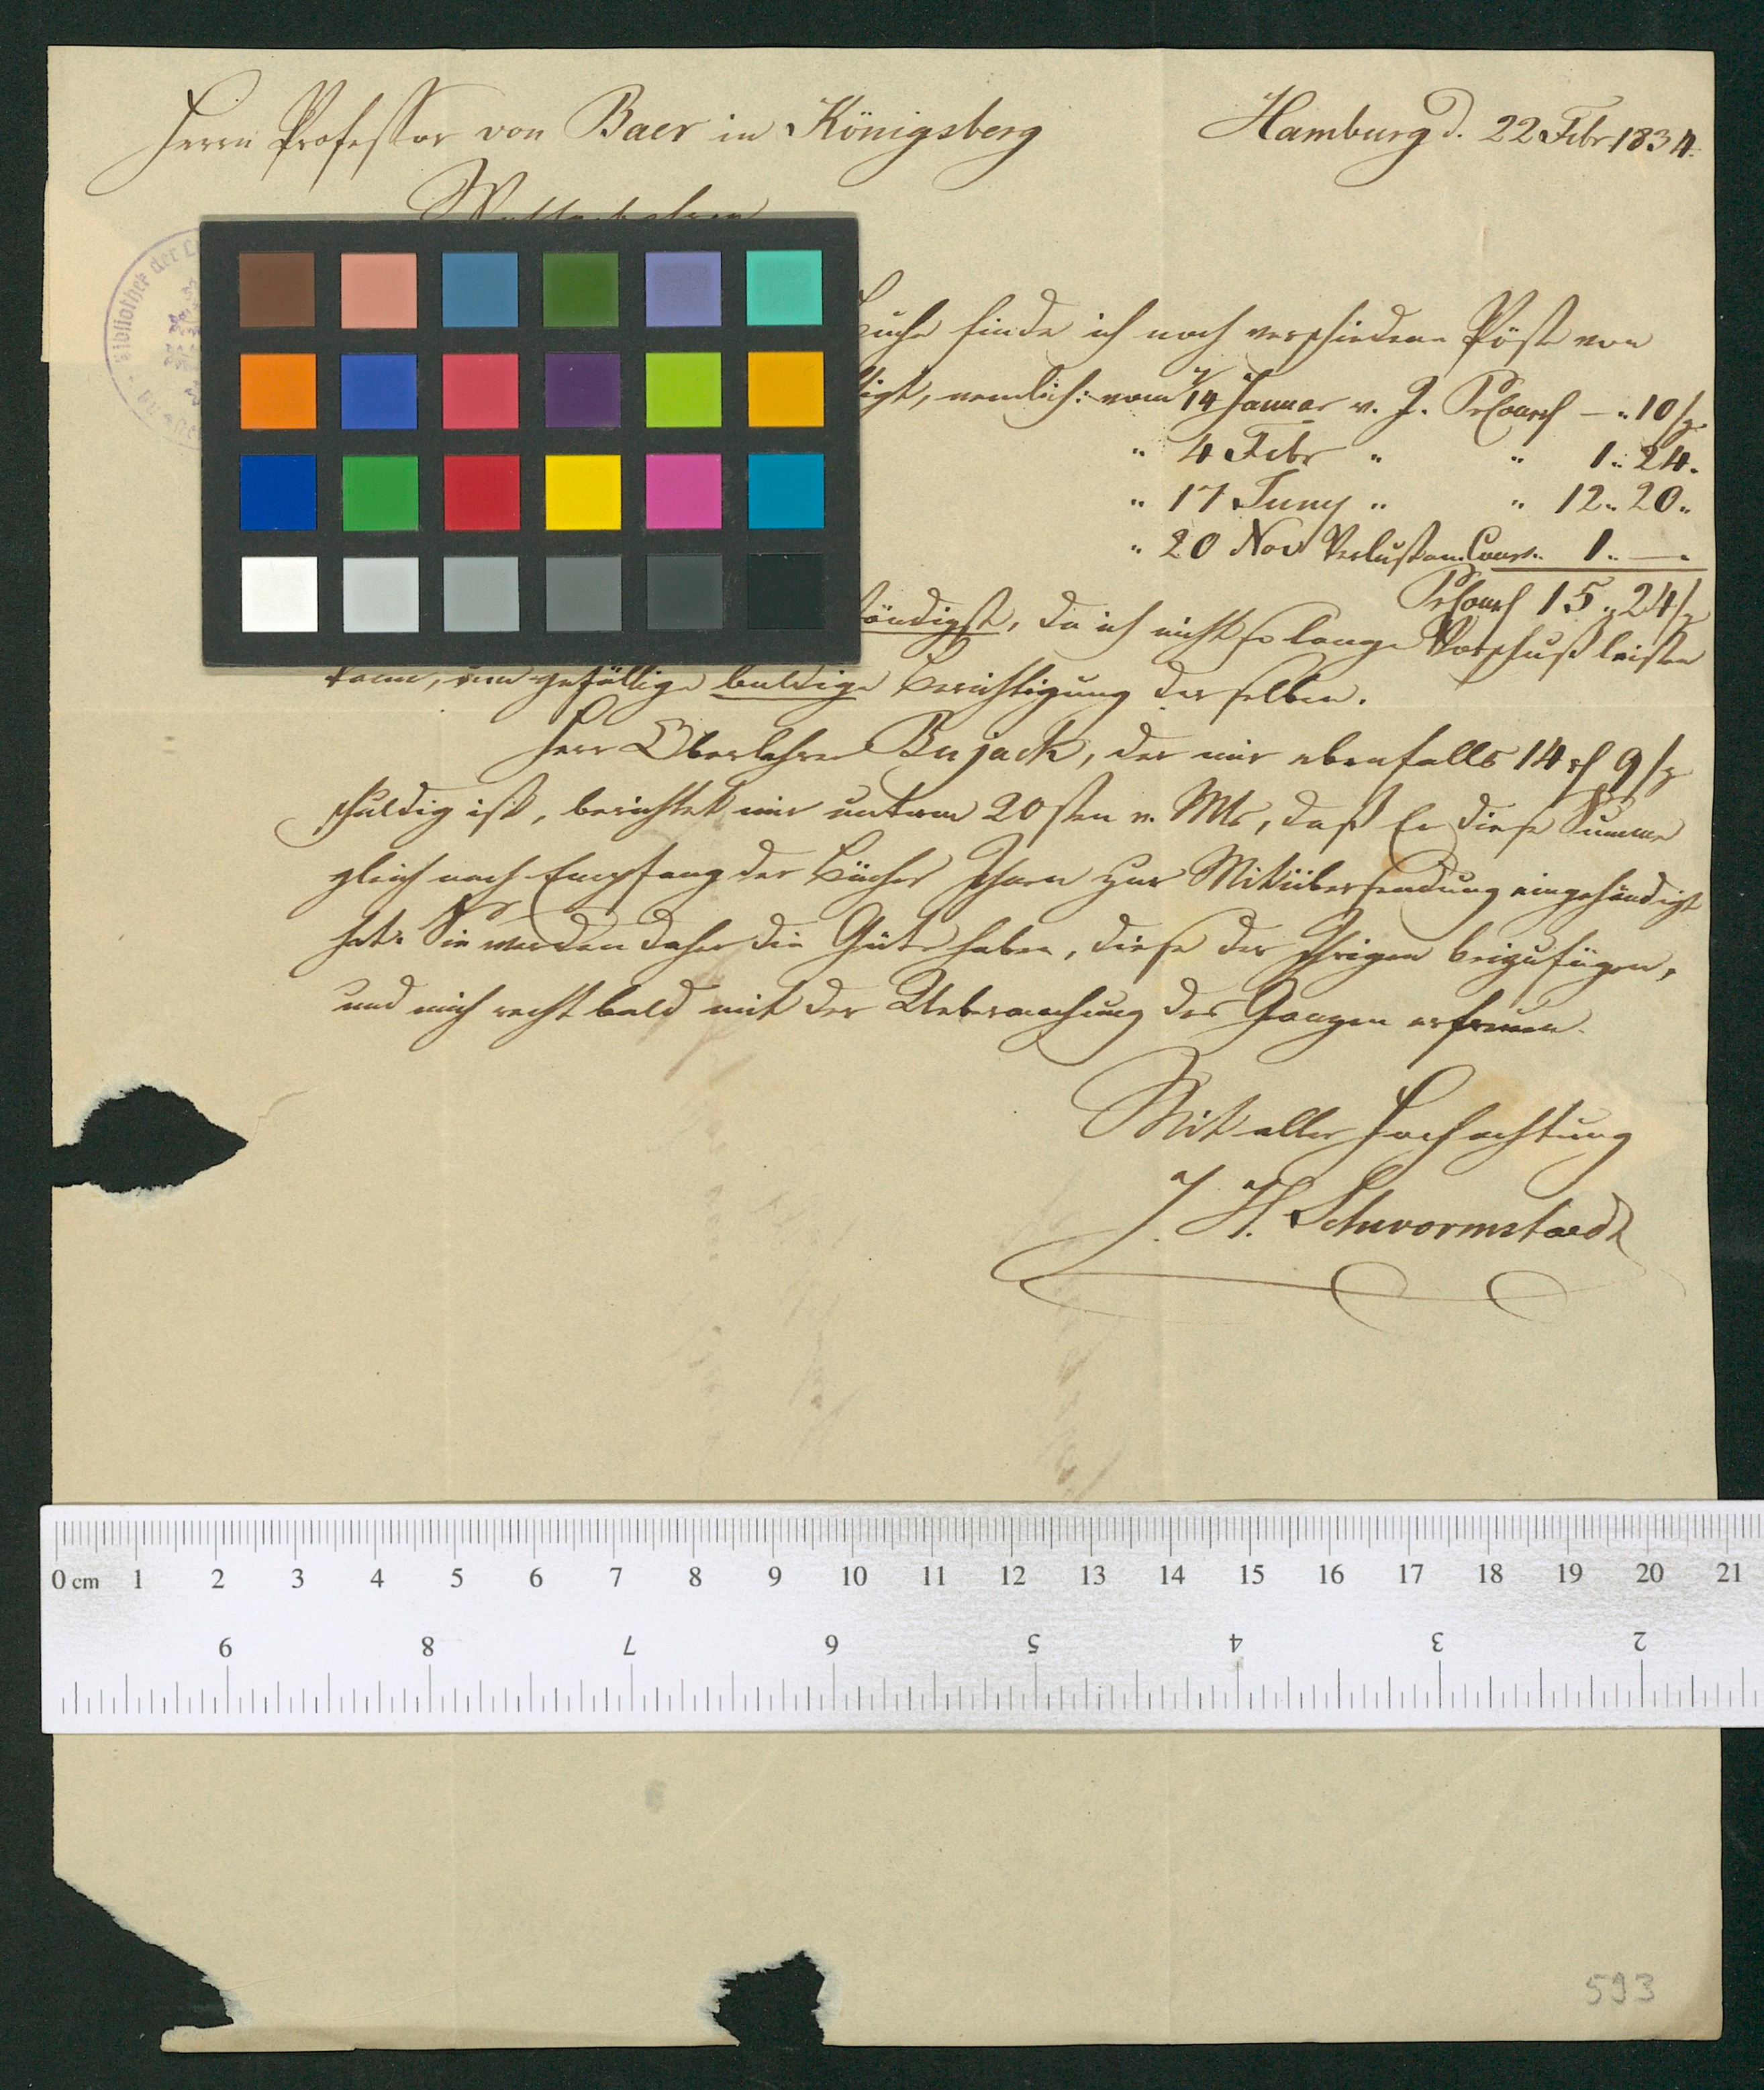 Herrn Professor von Baer in Königsberg
Hamburg d. 22 Febr 1834.
Bibliothek der
Buche finde ich noch verschiedene Pöste von
nemlich: vom 14 Januar v. J. PrCour 10
" 4 Febr " " 1. 24.
" 17 Juny " " 12. 20.
" 20 Nov Verlust am Cour. 1. —.
PrCour 15. 24
ständigst, da ich nicht so lange Vorschuß leisten
kann, um gefällige baldige Berichtigung derselben.
Herr Oberlehrer Bujack, der mir ebenfalls 14 rf 9
schuldig ist, berichtet mir unterm 20sten v. Mts, daß Er diese Summe
gleich nach Empfang der Bücher Ihnen zur Mitübersendung eingehändigt
hat. Sie werden daher die Güte haben, diese der Ihrigen beizufügen,
und mich recht bald mit der Uebermachung des Ganzen erfreuen.
Mit aller Hochachtung
J. H. Schwormstaedt
0 cm 1 2 3 4 5 6 7 8 9 10 11 12 13 14 15 16 17 18 19 20 21
9 8 7 6 5 4 3 2
593